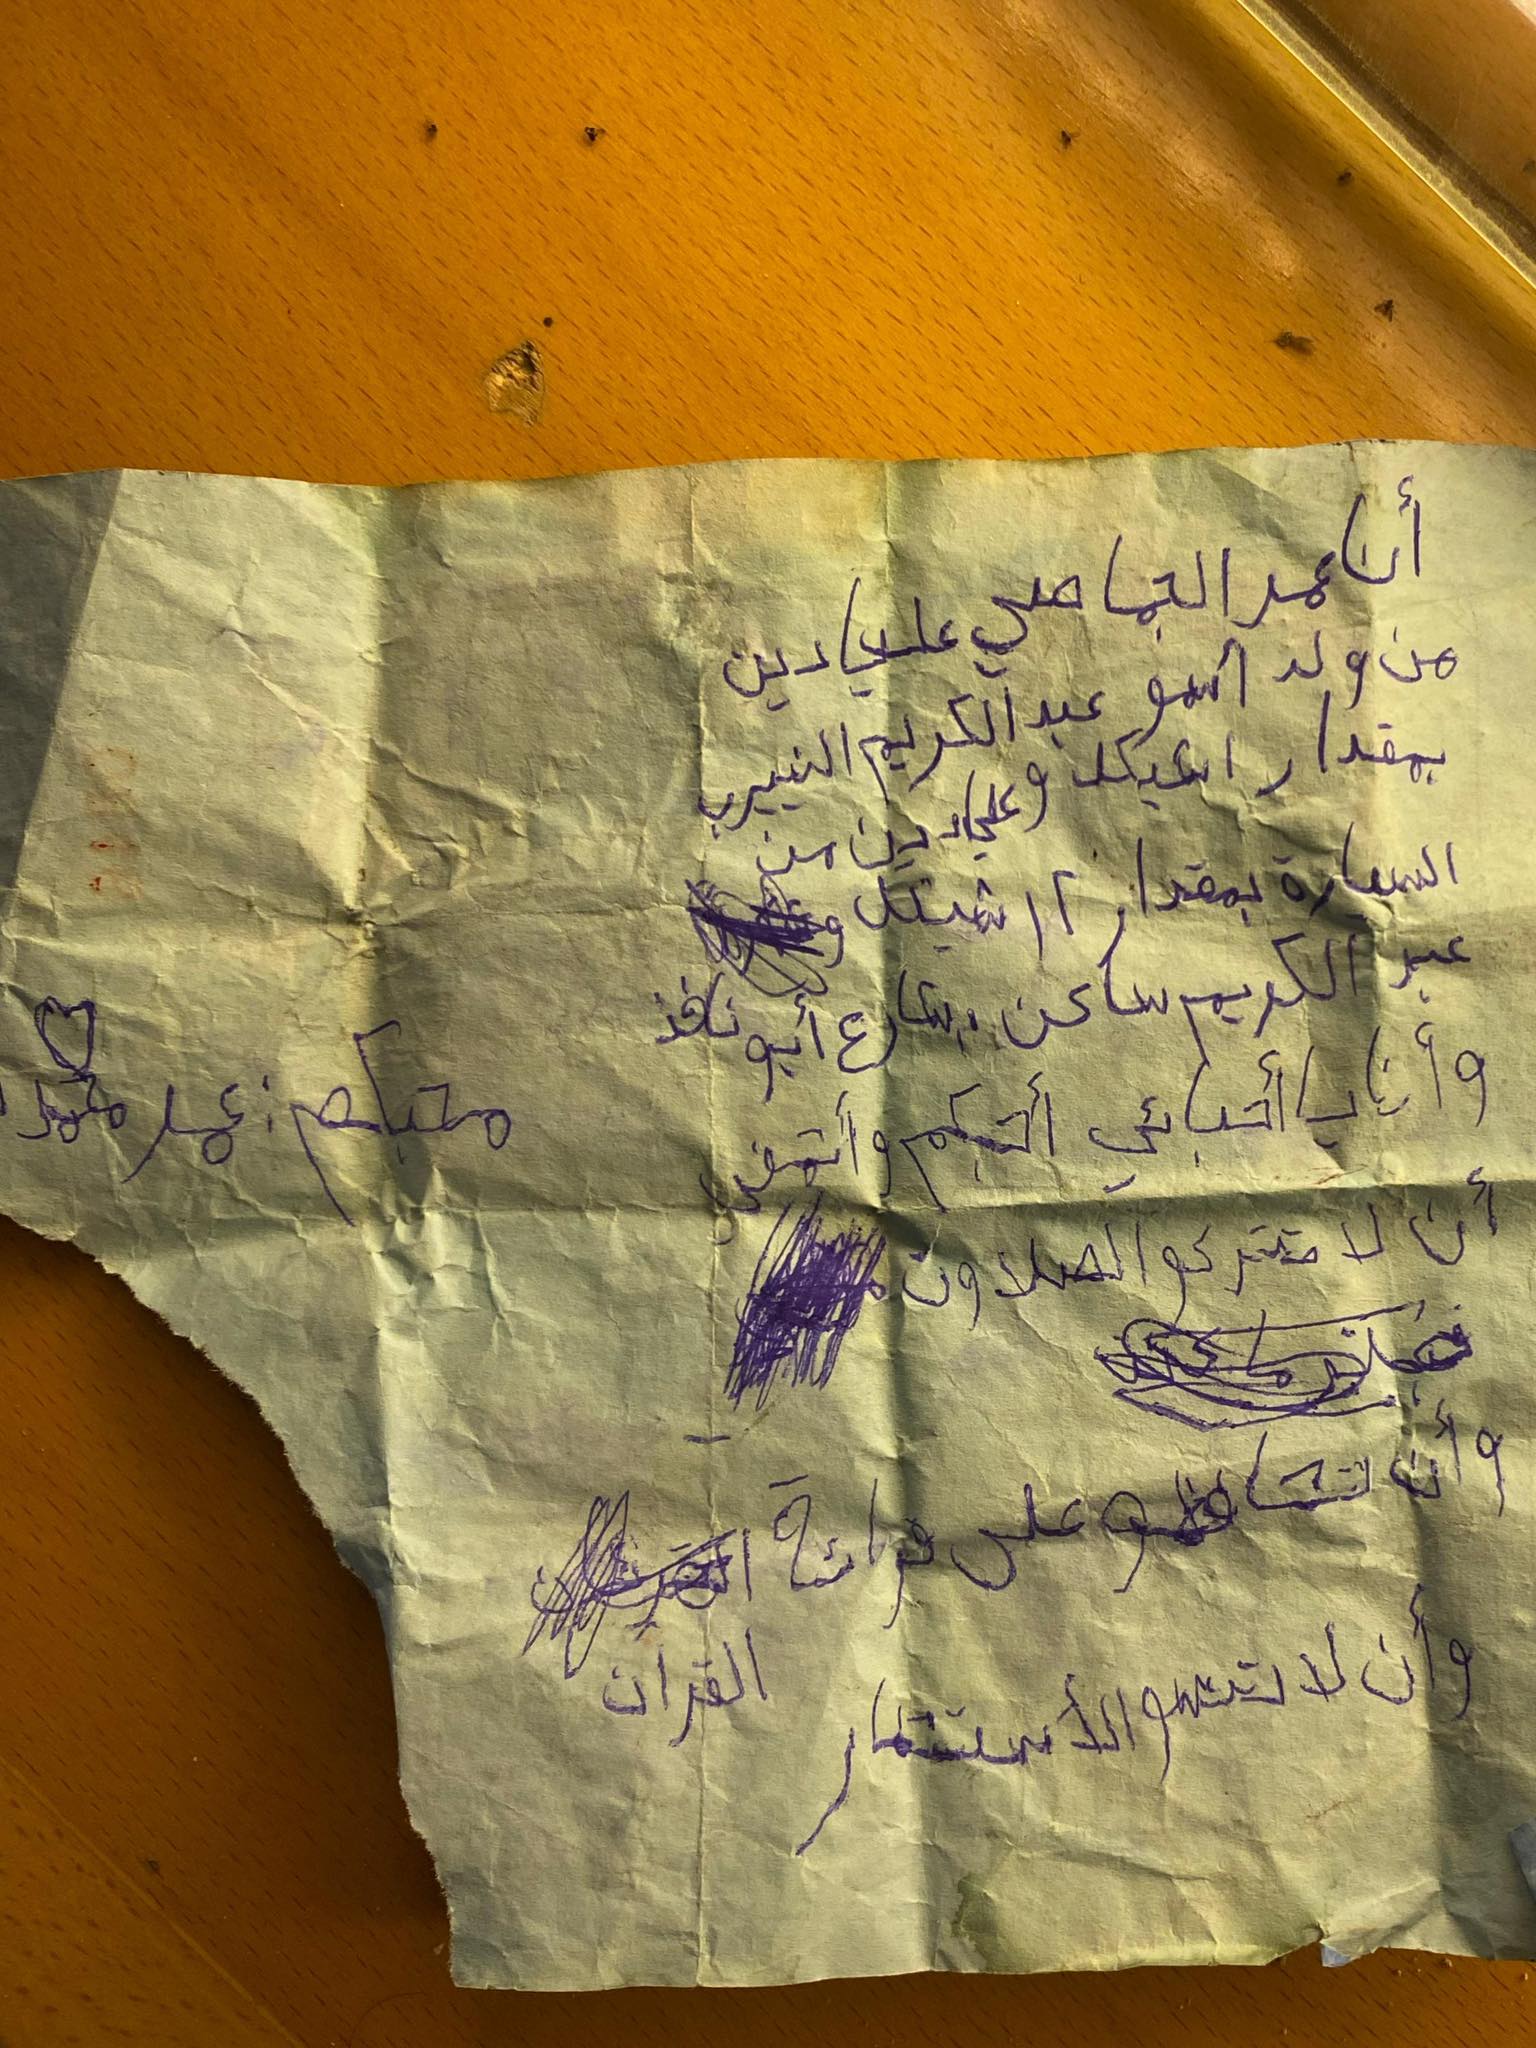 أنا عمر الجماصي علي دين
من ولد أسمو عبدالكريم النيرب
بمقدار اشيكل وعلي دين من
السيارة بمقدار ٢ شيكل و
عبد الكريم ساكن بشارع أبو نافذ
وأنا يا أحبائي أحبكم وأتمنى
أن لا تتركو الصلاوت
وأن تحافظو على قرائة
القرآن
وأن لا تنسو الأستغفار
محبكم: عمر محمد